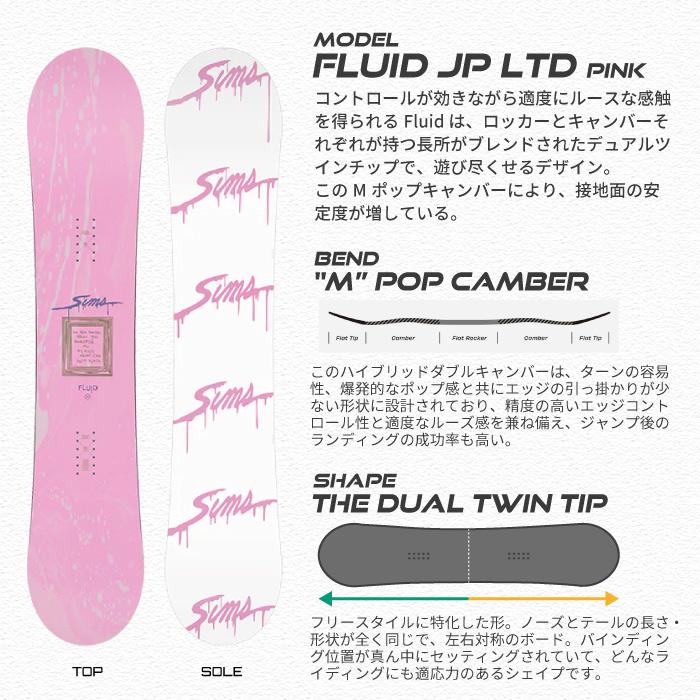 MODEL
FLUID JP LTD PINK
コントロールが効きながら適度にルースな感触
を得られる Fluid は、ロッカーとキャンバーそ
れぞれが持つ長所がブレンドされたデュアルツ
インチップで、遊び尽くせるデザイン。
この M ポップキャンバーにより、接地面の安
定度が増している。
BEND
"M" POP CAMBER
Flat Tip Camber Flat Rocker Camber Flat Tip
このハイブリッドダブルキャンバーは、ターンの容易
性、爆発的なポップ感と共にエッジの引っ掛かりが少
ない形状に設計されており、精度の高いエッジコント
ロール性と適度なルーズ感を兼ね備え、ジャンプ後の
ランディングの成功率も高い。
SHAPE
THE DUAL TWIN TIP
フリースタイルに特化した形。ノーズとテールの長さ・
形状が全く同じで、左右対称のボード。バインディン
グ位置が真ん中にセッティングされていて、どんなラ
イディングにも適応力のあるシェイプです。
Sims
FLUID
Sims
Sims
Sims
Sims
Sims
Sims
TOP
SOLE